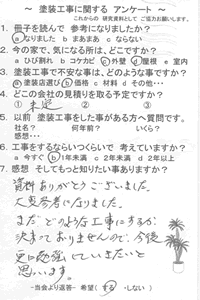 ～ 塗装工事に関する アンケート ～
これからの 研究資料として ご協力お願いします。
1. 冊子を読んで 参考になりましたか？
a なりました b まあまあ c ならない
2. 今の家で、気になる所は、どこですか？
a ひび割れ b コケカビ c 外壁 d 屋根 e 室内
3. 塗装工事で不安な事は、どのような事ですか？
a 塗装店選び b 価格 c 材料 d その他…
4. どこの会社の見積りを取る予定ですか？
① 未定 ② ③
5. 以前 塗装工事をした事がある方へ質問です。
社名？ 何年前？ いくら？
感想…
6. 工事をするならいつくらいで 考えていますか？
a 今すぐ b 1年未満 c 2年未満 d 2年以上
7. 感想 そしてもっと知りたい事ありますか？
資料ありがとうございました。
大変参考になりました。
まだ どのような工事にするか
決まっておりませんので、今後
更に勉強していきたいと
思います。
-当会より返答- 希望（ する ・しない ）